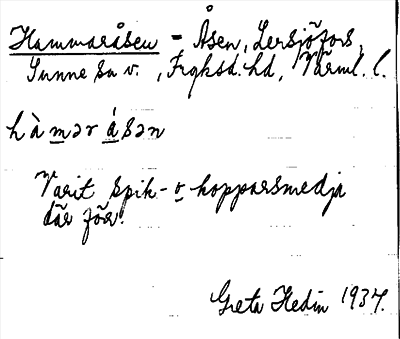 Hammaråsen = Åsen, Lersjöfors,
Sunne sn v., Fryksd. hd, Värml. l.
hàmər ásən
Varit spik- o kopparsmedja
där förr.
Greta Hedin 1937.